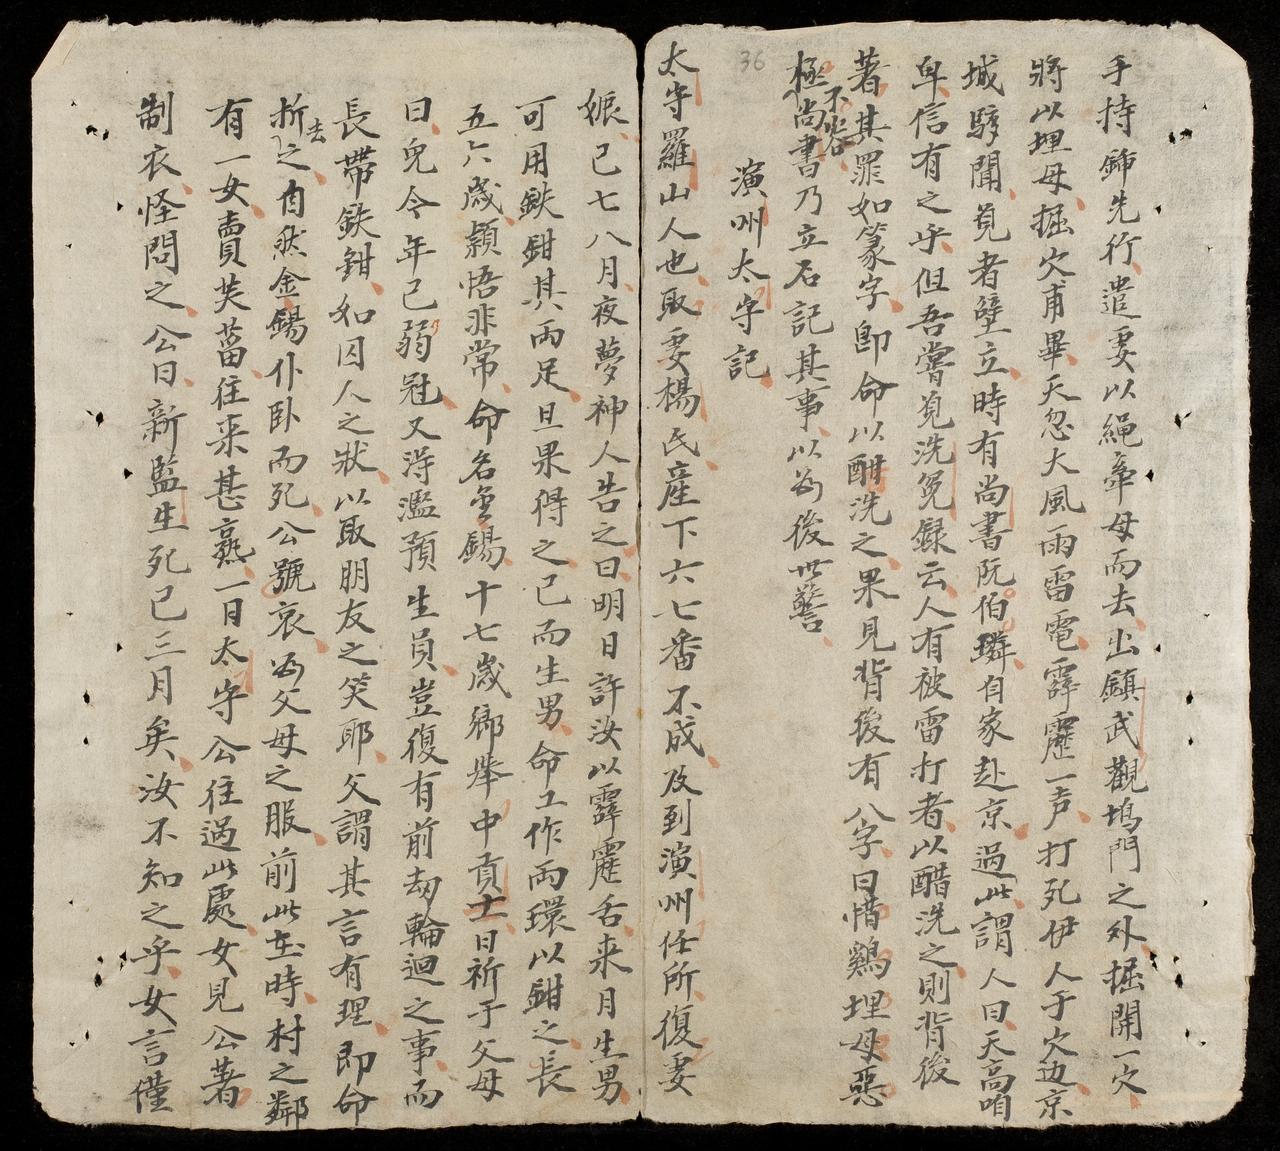 手持鈰先行遣妻以繩牽母而去出鎮武觀塢門之外掘開一穴
將以埋母掘穴甫畢天忽大風雨雷電霹靂一声打死伊人于穴边京
城駭聞覓者壁立時有尚書阮伯璘自家赴京過此謂人曰天高咱
卑信有之乎但吾嘗覓洗冤録云人有被雷打者以醋洗之則背後
著其罪如篆字即命以酣洗之果見背後有八字曰惜鷄埋母惡
極不容尚書乃立石記其事以為後世警
36
演州太守記
太守羅山人也取妻楊氏產下六七番不成及到演州任所復妻
娠已七八月夜夢神人告之曰明日許汝以霹靂舌来月生男
可用鉄鉗其両足旦果得之已而生男命工作両環以鉗之長
五六歲頴悟非常命名金錫十七歲鄉舉中貢士日祈于父母
曰兒今年已弱冠又淂濫預生員豈復有前刼輪迴之事而
長帶鉄鉗如囚人之狀以取朋友之笑耶父謂其言有理即命
折去之自然金錫仆卧而死公號哀為父母之服前此在時村之鄰
有一女賣芙蒥往来甚熟一日太守公往過此處女見公著
制衣怪問之公曰新監生死已三月矣汝不知之乎女言僅